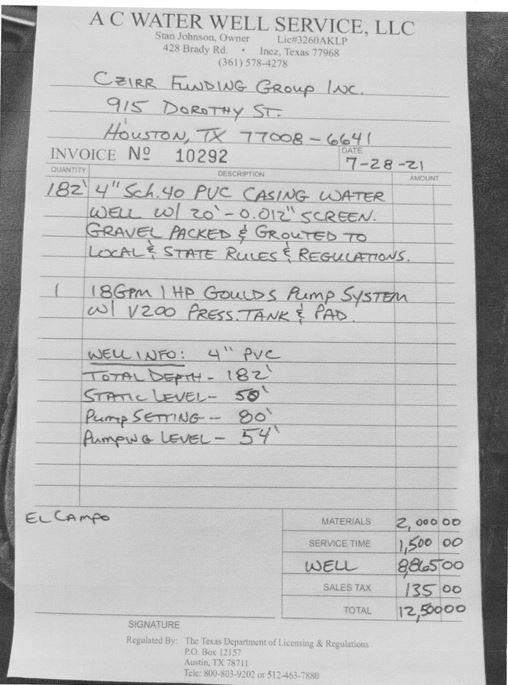 A C WATER WELL SERVICE, LLC
Stan Johnson, Owner Lic#3260AKLP
428 Brady Rd. • Inez, Texas 77968
(361) 578-4278
CZIRR FUNDING GROUP INC.
915 DOROTHY ST.
HOUSTON, TX 77008-6641
INVOICE Nº 10292
DATE
7-28-21
QUANTITY DESCRIPTION AMOUNT
182' 4" Sch.40 PVC CASING WATER
WELL W/ 20'-0.012" SCREEN.
GRAVEL PACKED & GROUTED TO
LOCAL & STATE RULES & REGULATIONS.
1 18GPM 1HP GOULDS PUMP SYSTEM
W/ V200 PRESS.TANK & PAD.
WELL INFO: 4" PVC
TOTAL DEPTH - 182'
STATIC LEVEL - 50'
PUMP SETTING - 80'
PUMPING LEVEL - 54'
EL CAMPO
MATERIALS 2,000 00
SERVICE TIME 1,500 00
WELL 8,865 00
SALES TAX 135 00
TOTAL 12,500 00
SIGNATURE
Regulated By: The Texas Department of Licensing & Regulations
P.O. Box 12157
Austin, TX 78711
Tele: 800-803-9202 or 512-463-7880